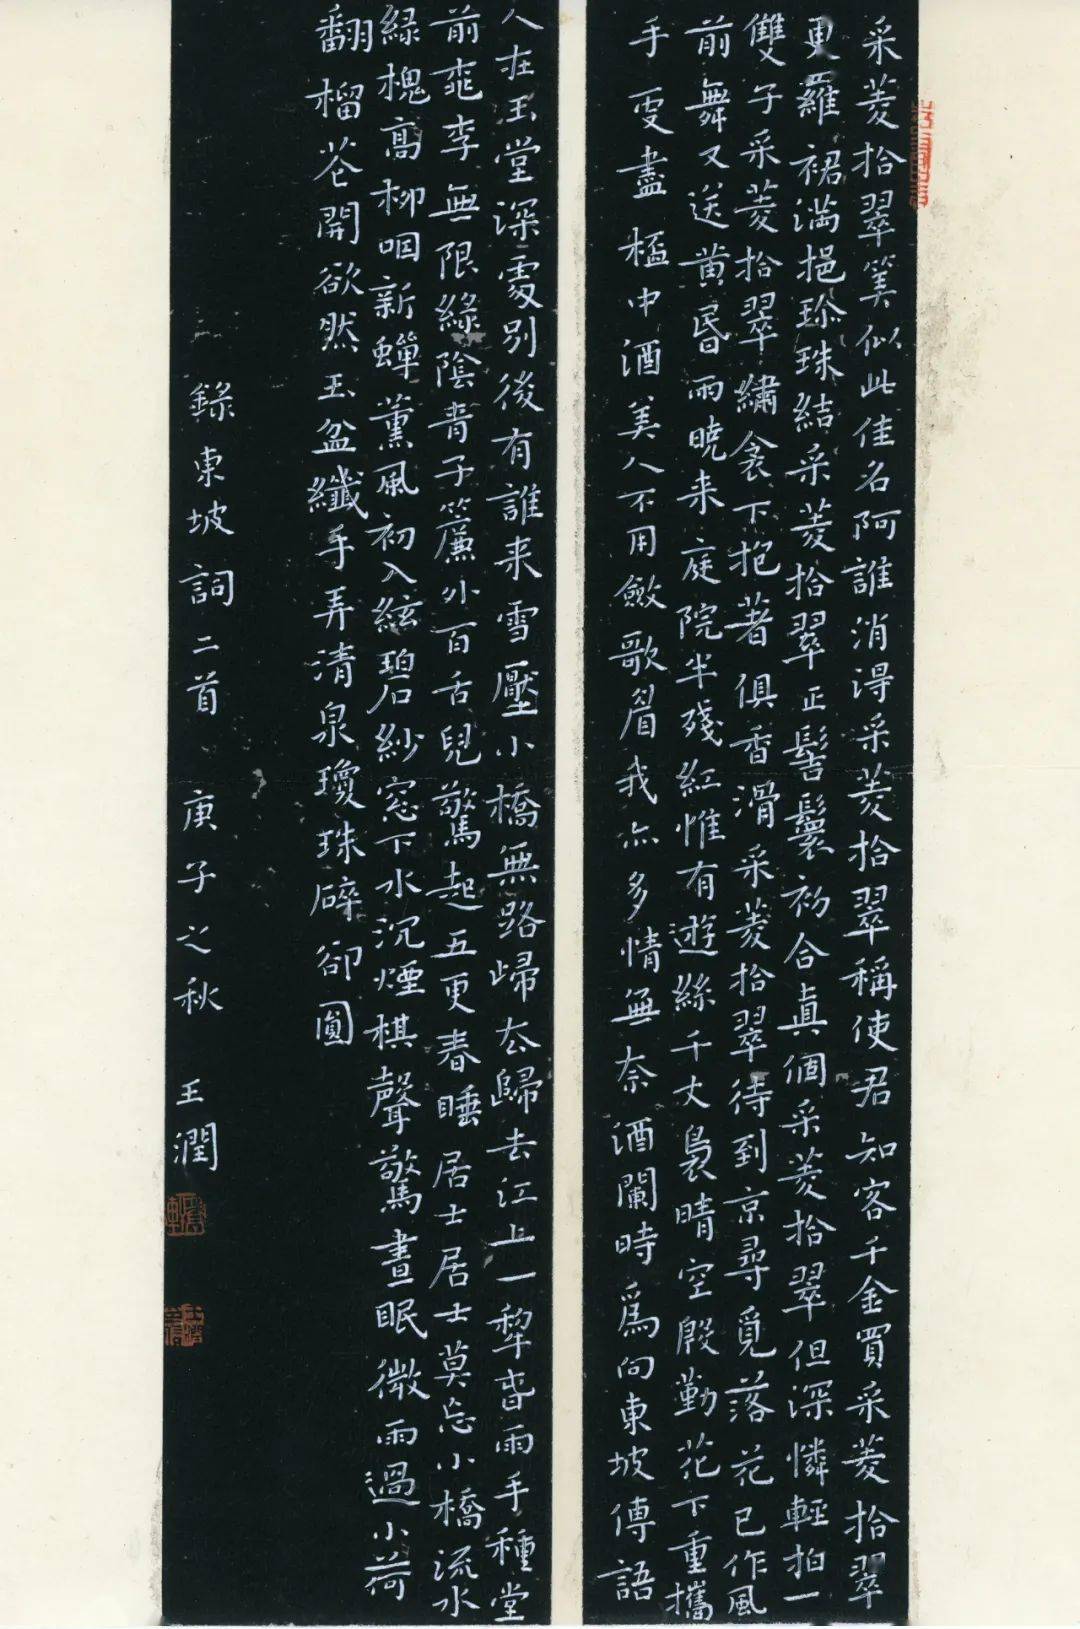 采菱拾翠筭似此佳名阿誰消淂采菱拾翠稱使君知客千金買采菱拾翠
更羅裙滿把珎珠結采菱拾翠正髻鬟初合真個采菱拾翠但深憐輕拍一
雙子采菱拾翠繡衾下抱著俱香滑采菱拾翠待到京尋覓落花已作風
前舞又送黄昏雨暁来庭院半殘紅惟有遊絲千丈裊晴空殷勤花下重攜
手更盡桮中酒美人不用斂歌眉我亦多情無奈酒闌時爲向東坡傳語
人在玉堂深處別後有誰来雪壓小橋無路歸去歸去江上一犂春雨手種堂
前桃李無限綠陰青子簾外百舌兒驚起五更春睡居士居士莫忘小橋流水
綠槐高柳咽新蟬薰風初入絃碧紗窓下水沉煙棋聲驚晝眠微雨過小荷
翻榴花開欲然玉盆纖手弄清泉瓊珠碎卻圓
錄東坡詞二首 庚子之秋 王潤